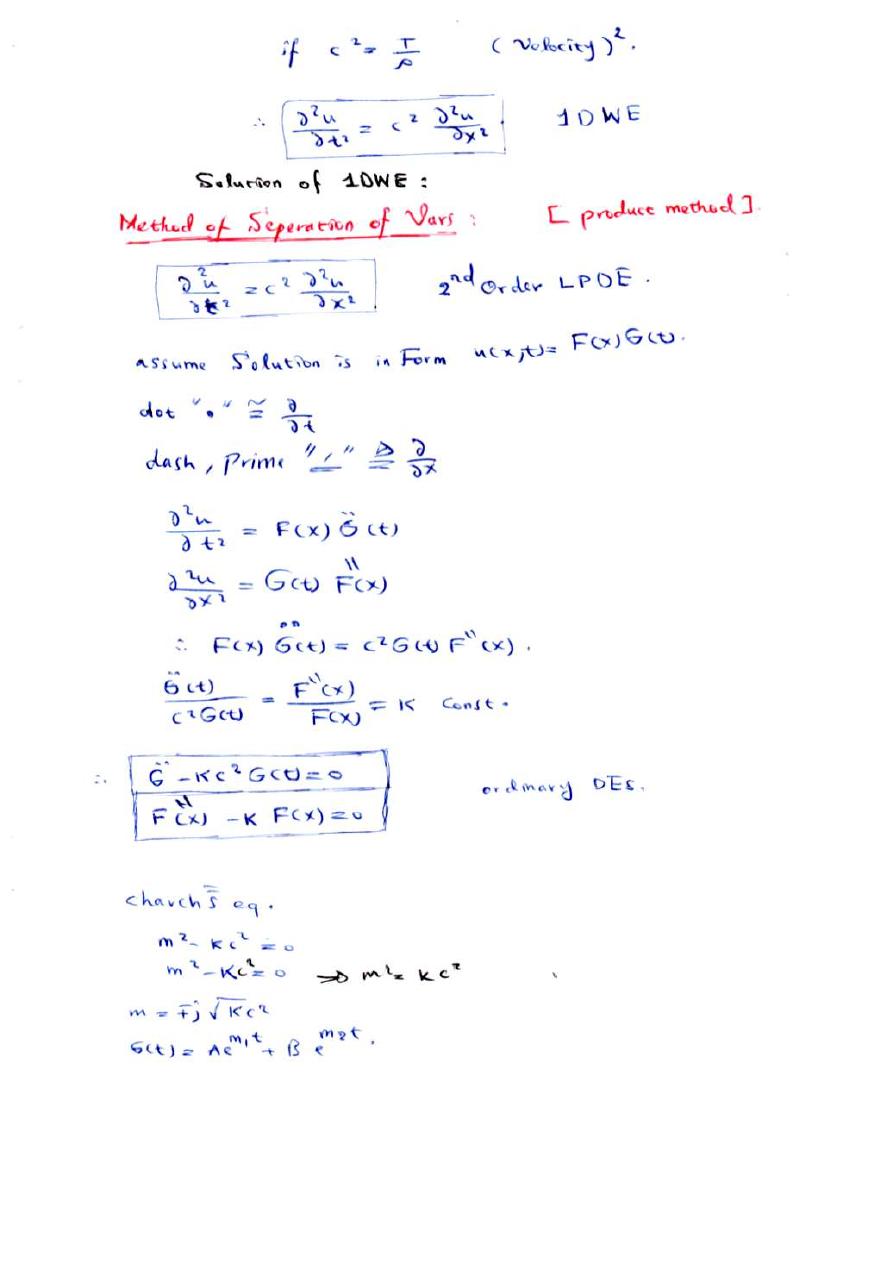 if c² = T/ρ (Velocity)².
∴ ∂²u/∂t² = c² ∂²u/∂x² 1DWE
Solution of 1DWE :
Method of Seperation of Vars : [ product method ].
∂²u/∂t² = c² ∂²u/∂x² 2nd Order LPDE .
assume Solution is in Form u(x,t) = F(x)G(t).
dot "." ≅ ∂/∂t
dash , Prime "'" ≜ ∂/∂x
∂²u/∂t² = F(x) G̈(t)
∂²u/∂x² = G(t) F''(x)
∴ F(x) G̈(t) = c²G(t) F''(x) .
G̈(t)/c²G(t) = F''(x)/F(x) = K Const .
∴ G̈ - Kc²G(t) = 0
F''(x) - K F(x) = 0 ordinary DEs.
eq .
m² - Kc² = 0
m² - Kc² = 0 ⇒ m² = Kc²
m = ∓j √Kc²
G(t) = Ae^m₁t + B e^m₂t .